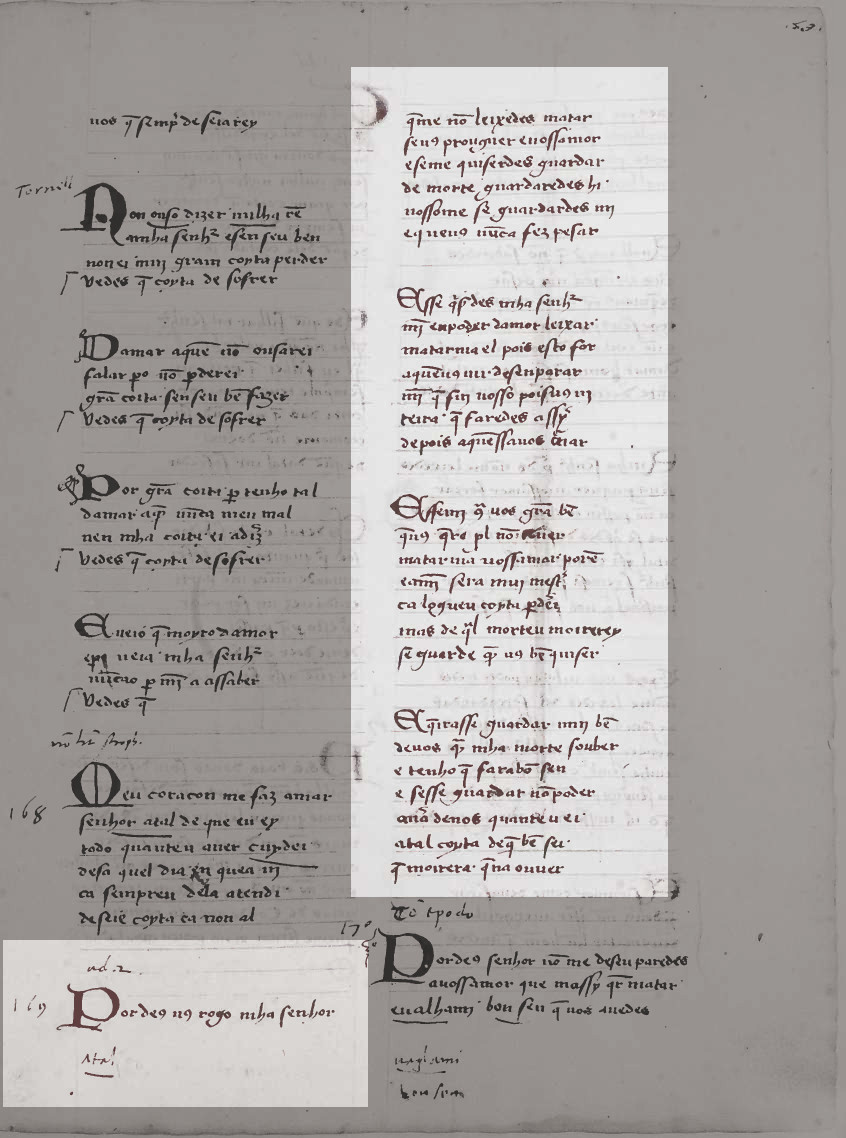 uos q̄ semp̃ deseiarey
Tornell
Non ouso dizer nulha rē
amha senhᷣ e sen seu ben
non ei mui gram coyta perder
Vedes q̄ coyta de sofrer
Damar aquē nō ousarei
falar p̱o nō p̱derei
grā coita sen seu bē fazer
Vedes q̄ coyta de sofrer
Por grā coita p̱ tenho tal
damar a q̄ nūca meu mal
nen mha coita ei a diz̃
Vedes q̄ coyta de sofrer
E ueio q̄ moyro damor
mha senhᷣ
nūcao p̱ mī a assaber
Vedes q̄
168
Meu coracon me faz amar
senhor atal de que eu ey
todo quanteu auer cuydei
desa quel dia en que a ui
ca sempreu dela atendi
coyta ca non al
ad.2.
169
Por deꝯ uꝯ rogo mha senhor
Atal
q̄me nō leixedes matar
seuꝯ prouguer a uossamor
e seme quiserdes guardar
de morte guardaredes hi
uossome se guardardes mi
e que uꝯ nūca fez pesar
E sse q̄s̃des mha senhᷣ
mī en poder damor leixar
matarma el pois esto for
aquē uꝯ uir desenparar
mī q̄ fui uosso pois uꝯ ui
terra q̄ faredes assy
depois aquē ssa uos
E ssemi q̄ uos grā bē
q̄ uꝯ q̄ro pl nō
matarma uossamor porē
e a mī sera mui mest̃
ca logueu coyta p̱der̃
mas de q̄l morteu moirerey
se guarde q̄ uꝯ bē quiser
E q̄irasse guardar mui bē
de uos q̄ mha morte souber
e tenho q̄ fara bō sen
e sesse guardar nō poder
denos quanteu ei
atal coyta de q̄ bē sei
q̄ moirera q̄na ouuer
170
Por deꝯ senhor nō me desenparedes
a uossamor que massy q̄r matar
e ualhami bon sen q̄ uos auedes
ualhami
bon sen